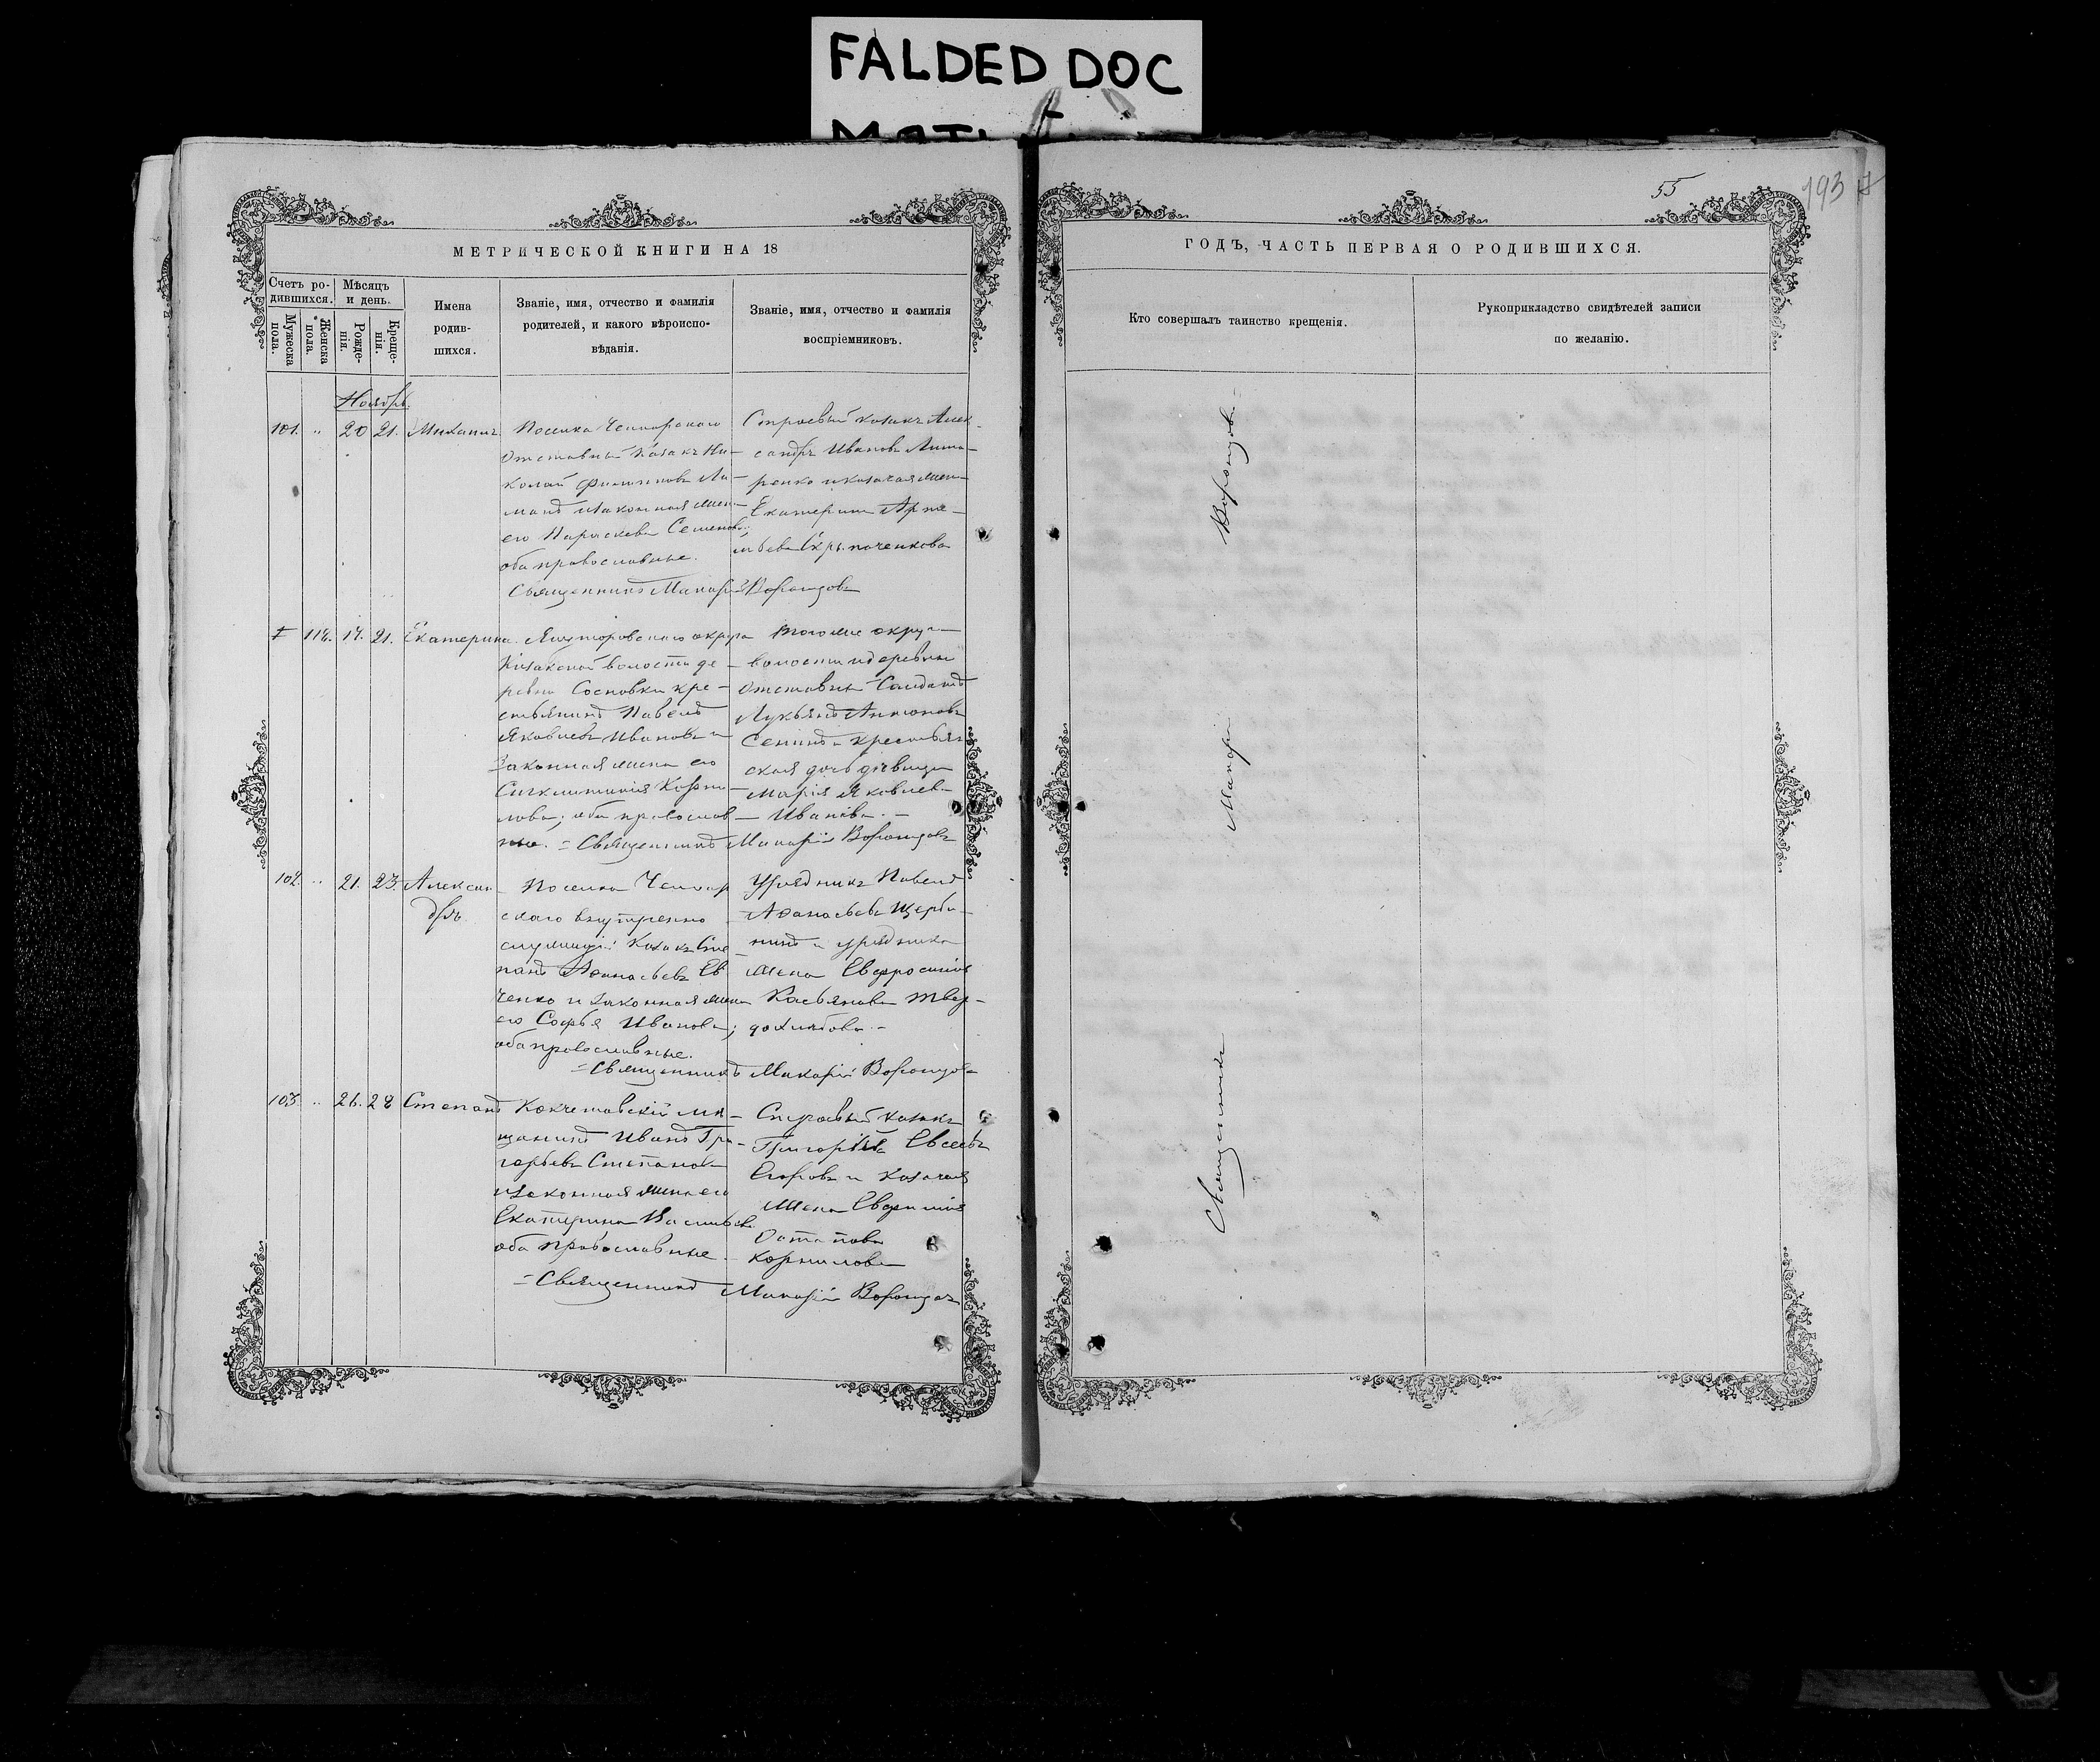 FALDED DOC
55
193
МЕТРИЧЕСКОЙ КНИГИ НА 18
ГОДЪ, ЧАСТЬ ПЕРВАЯ О РОДИВШИХСЯ.
Счетъ ро-
дившихся.
Мужеска
пола.
Женска
пола.
Мѣсяцъ
и день.
Рожде-
нія.
Креще-
нія.
Имена
родив-
шихся.
Званіе, имя, отчество и фамилія
родителей, и какого вѣроиспо-
вѣданія.
Званіе, имя, отчество и фамилія
воспріемниковъ.
Кто совершалъ таинство крещенія.
Рукоприкладство свидѣтелей записи
по желанію.
Ноябрь.
101. „ 20 21. Михаилъ.
Поселка
Отставный Казакъ Ни-
колай Филиповъ
законная жен-
его Параскева Семенова;
оба православные.
Строевый казакъ Алек-
сандръ Ивановъ
и казачая жен-
Екатерина Арте-
мьева
Священникъ Макарій Воронцовъ
118. 17. 21. Екатерина.
Ялуторовскаго округа
волости де-
ревни Сосновки кре-
стьянинъ Павелъ
Яковлевъ Ивановъ и
Законная жена его
Синклитикія Корни-
лова; оба православ-
ные.
Того же округа
волости и деревни
Отставный Солдатъ
Лукьянъ Антоновъ
Сенинъ и крестьян-
ская дочь дѣвица
Марія Яковлева
Иванова. –
= Священникъ Макарій Воронцовъ
102. „ 21. 23. Алексан-
дръ.
Поселка
скаго внутренно-
служащій Казакъ Сте-
панъ Афанасьевъ Ев-
ченко и законная жена
его Софья Иванова;
оба православные.
Урядникъ Павелъ
Афанасьевъ Щерби-
нинъ и урядника
жена Евфросинія
Касьянова Твер-
дохлѣбова. –
= Священникъ Макарій Воронцовъ
103. „ 26. 28 Степанъ
Кокчетавскій мѣ-
щанинъ Иванъ Гри-
горьевъ Степановъ
и законная жена его
Екатерина Васильева
оба православные.
Строевый казакъ
Григорій Евсеевъ
Егоровъ и казачая
жена Евфимія
Остапова
Корнилова
= Священникъ Макарій Воронцовъ
Священникъ Макарій Воронцовъ